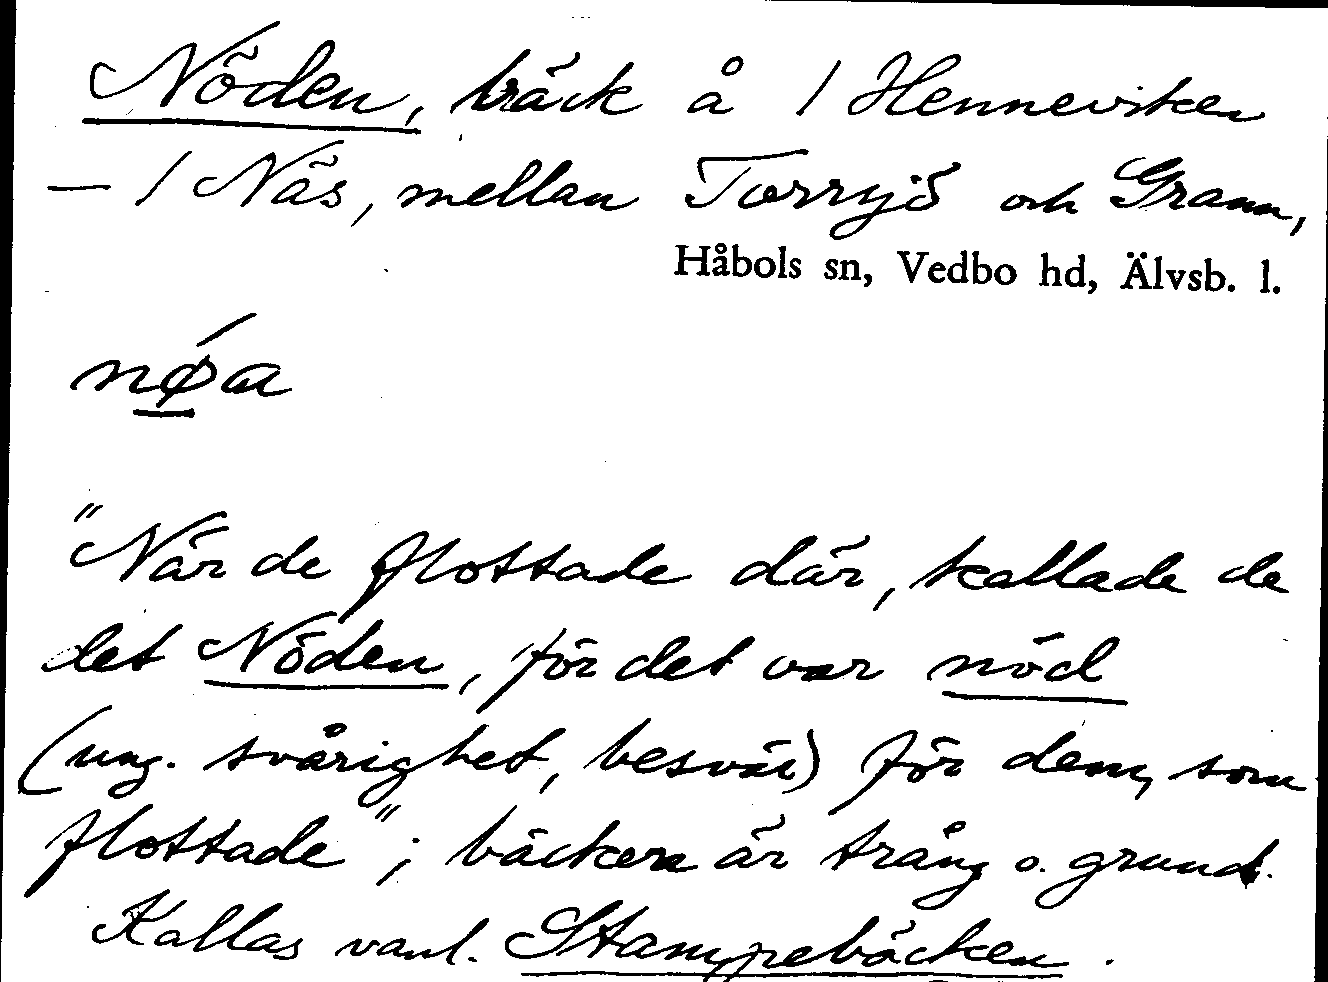 Nöden, bäck å 1 Henneviken
— 1 Näs, mellan Torrsjö och Grann,
Håbols sn, Vedbo hd, Älvsb. l.
nǿa
"När de flottade där, kallade de
det Nöden, för det var nöd
(ung. svårighet, besvär) för dem, som
flottade"; bäcken är trång o. grund.
Kallas vanl. Stampebäcken.